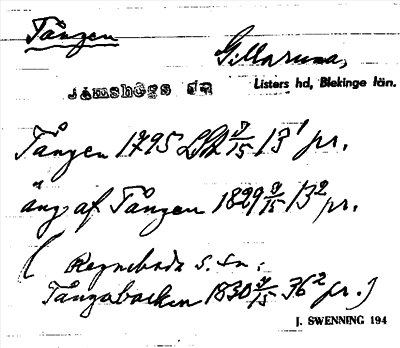 Tången
Gillaruna,
Jämshögs sn
Listers hd, Blekinge län.
Tången 1795 LSA 7/15 13¹ pr.
äng af Tången 1829 9/15 13² pr.
( Regneboda s. sn:
Tångabacken 1830 7/15 36² pr.)
J. SWENNING 194